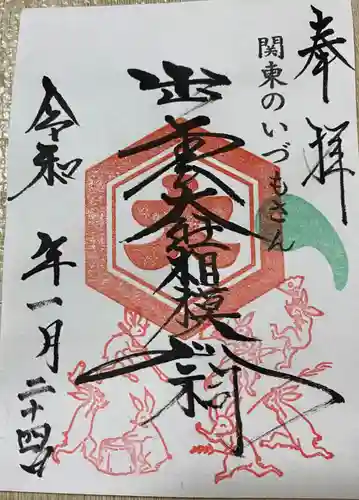 奉拝
関東のいづもさん
出雲大社相模分祠
令和 年一月二十四日